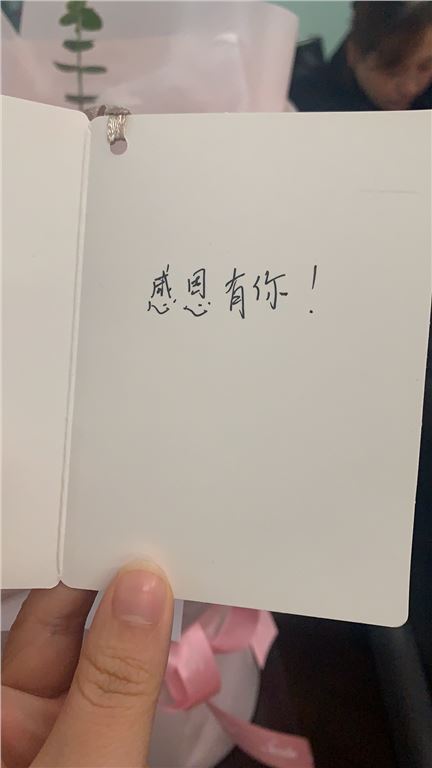 感恩有你！